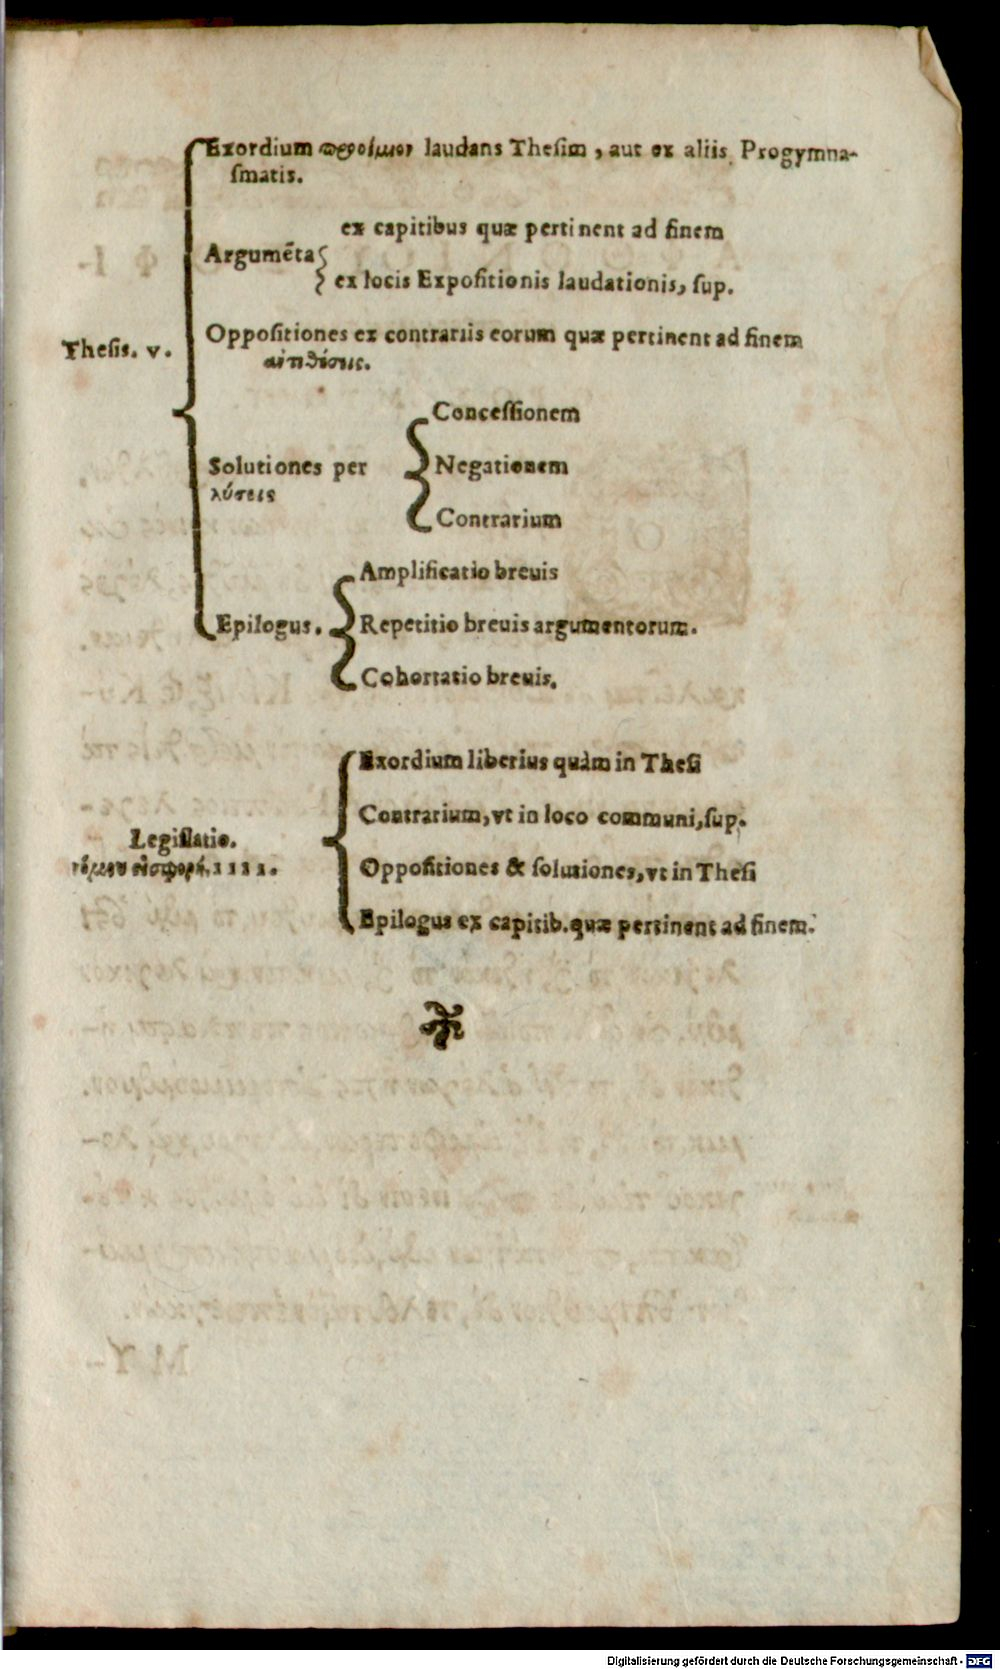 Exordium προοίμιον laudans Thesim, aut ex aliis Progymna-
smatis.
ex capitibus quæ pertinent ad finem
Argumẽta
ex locis Expositionis laudationis, sup.
Oppositiones ex contrariis eorum quæ pertinent ad finem
Thesis. v.
ἀντιθέσεις.
Concessionem
Solutiones per
Negationem
λύσεις
Contrarium
Amplificatio breuis
Epilogus.
Repetitio breuis argumentorum.
Cohortatio breuis.
Exordium liberius quàm in Thesi
Contrarium, vt in loco communi, sup.
Legislatio.
νόμου εἰσφορά. IIII.
Oppositiones & solutiones, vt in Thesi
Epilogus ex capitib. quæ pertinent ad finem.
Digitalisierung gefördert durch die Deutsche Forschungsgemeinschaft - DFG